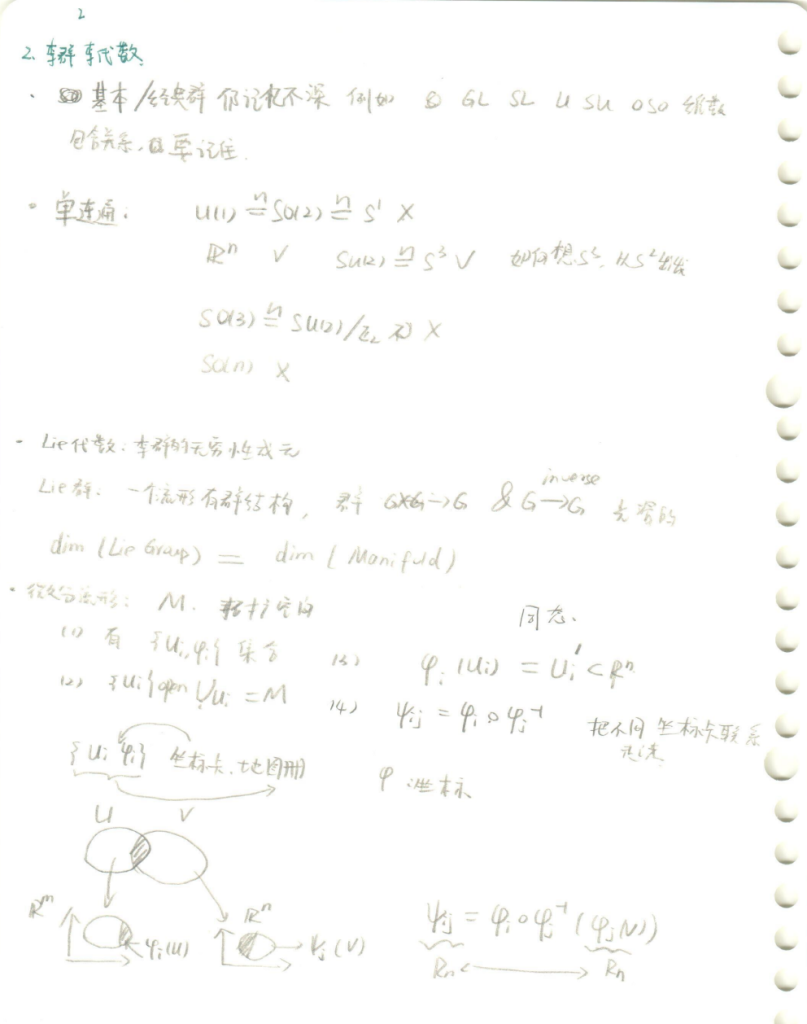 2
2. 李群 李代数
· 基本/经典群 仍记忆不深 例如 GL SL U SU O SO 维数
包含关系,要记住.
· 单连通: U(1) ≅ SO(2) ≅ S¹ X
ℝⁿ V SU(2) ≅ S³ V 如何想S³, 从S²出发
SO(3) ≅ SU(2)/Z₂ 不 X
SO(n) X
- Lie代数: 李群的无穷小生成元
Lie群: 一个流形有群结构, 群 G×G→G & G \xrightarrow{inverse} G 光滑的
dim (Lie Group) = dim (Manifold)
· 微分流形: M. 拓扑空间
同态.
(1) 有 {Ui, φi} 集合
(3) φi (Ui) = Ui' ⊂ ℝⁿ
(2) {Ui} open ∪Ui = M
(4) ψij = φi ∘ φj⁻¹ 把不同坐标卡联系
起来
{Ui φi} 坐标卡.地图册
φ:坐标
U V
ℝᵐ φi(U) ℝⁿ ψj(V)
ψij = φi∘φj⁻¹ (φj(V))
Rn Rn